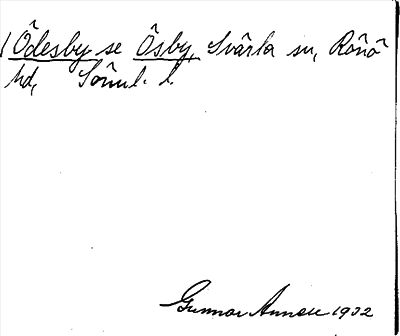 Ôdesby se Ôsby, Svârta sn, Rônô
hd, Sôrml. l.
Gunnar Annell 1932